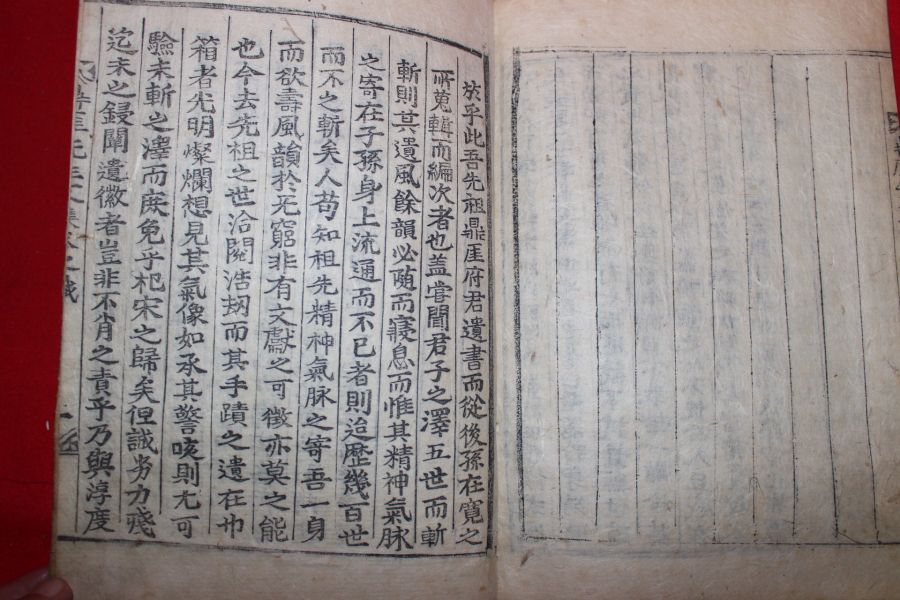 於乎此吾先祖鼎厓府君遺書而從後孫在寬之
所蒐輯而編次者也盖嘗聞君子之澤五世而斬
斬則其遺風餘韻必随而寖息而惟其精神氣脉
之寄在子孫身上流通而不已者則迨歷幾百世
而不之斬矣人苟知祖先精神氣脉之寄吾一身
而欲壽風韻於无窮非有文獻之可徵亦莫之能
也今去先祖之世洽閱浩刼而其手蹟之遺在巾
箱者光明燦爛想見其氣像如承其警咳則尤可
驗未斬之澤而庶免乎杞宋之歸矣但誠劣力殘
迄未之鋟闡遺徽者豈非不肖之責乎乃與淳度